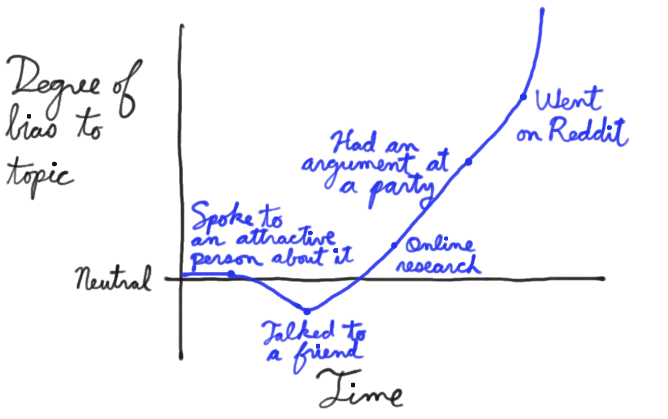 Degree of
bias to
topic
Neutral
Spoke to
an attractive
person about it
Talked to
a friend
Online
research
Had an
argument at
a party
Went
on Reddit
Time